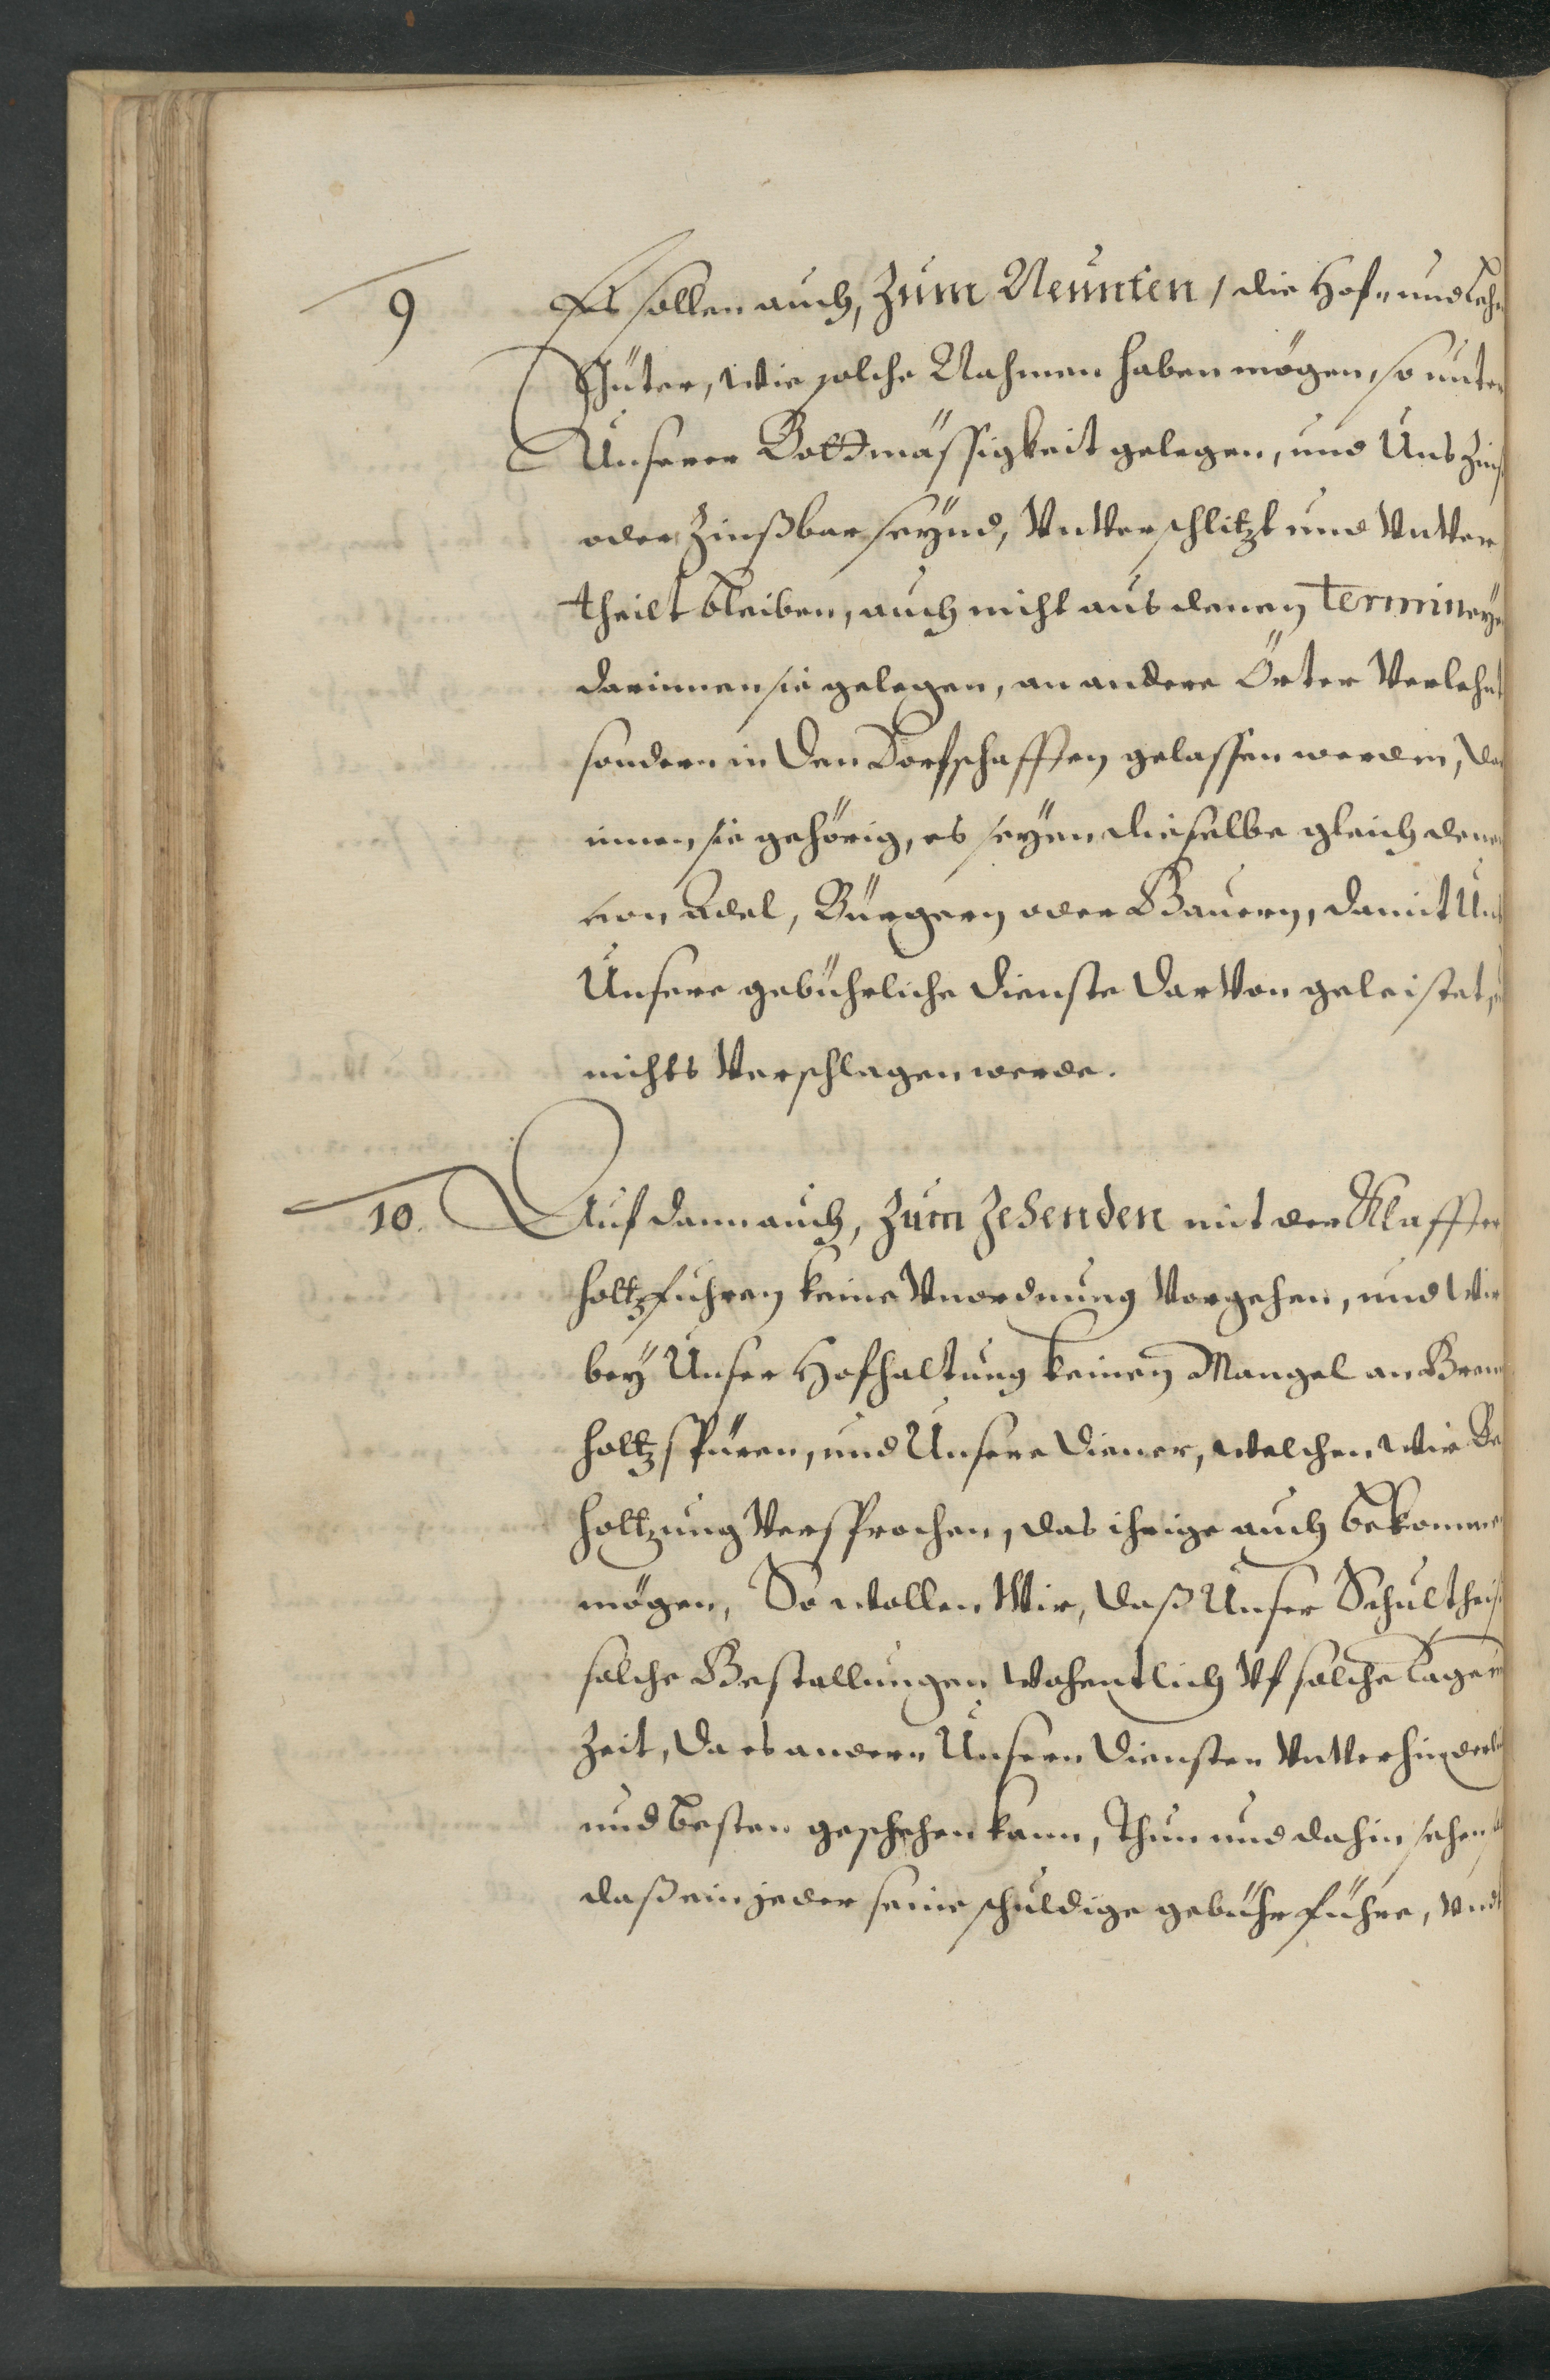 9
Es sollen auch, Zum Neunten, die Hof- und Lehn
Güter, wie solche Nahmen haben mögen, so unter
Unserer Bottmässigkeit gelegen, und Uns Zinß
oder Zinßbar seynd, Vnverschlitzt und Vnver
theilt bleiben, auch nicht aus denen Termineyen
darinnen sie gelegen, an andere Örter Verlehnt
sondern in den Dorfschafften gelassen werden, da
innen sie gehörig, es seyen dieselbe gleich denen
von Adel, Bürgern oder Bauern, damit Uns
Unsere gebührliche Dienste darvon geleistet,
nichts Verschlagen werde.
10. Auf dann auch, Zum Zehenden mit der Klaffter
holtzfuhren keine Vnordnung Vorgehen, und Wir
bey Unser Hofhaltung keinen Mangel an Brenn
holtz spüren, und Unsere Diener, welchen wir Be
holtzung Versprochen, das ihrige auch bekommen
mögen, So wollen Wir, daß Unser Schultheiß
solche Bestallungen wochentlich Vf solche Tage
Zeit, da es andern Unsern Diensten Vnverhinderlich
und besten geschehen kann, Thun und dahin sehen
daß ein jeder seine schuldige gebühr führe, Vndt